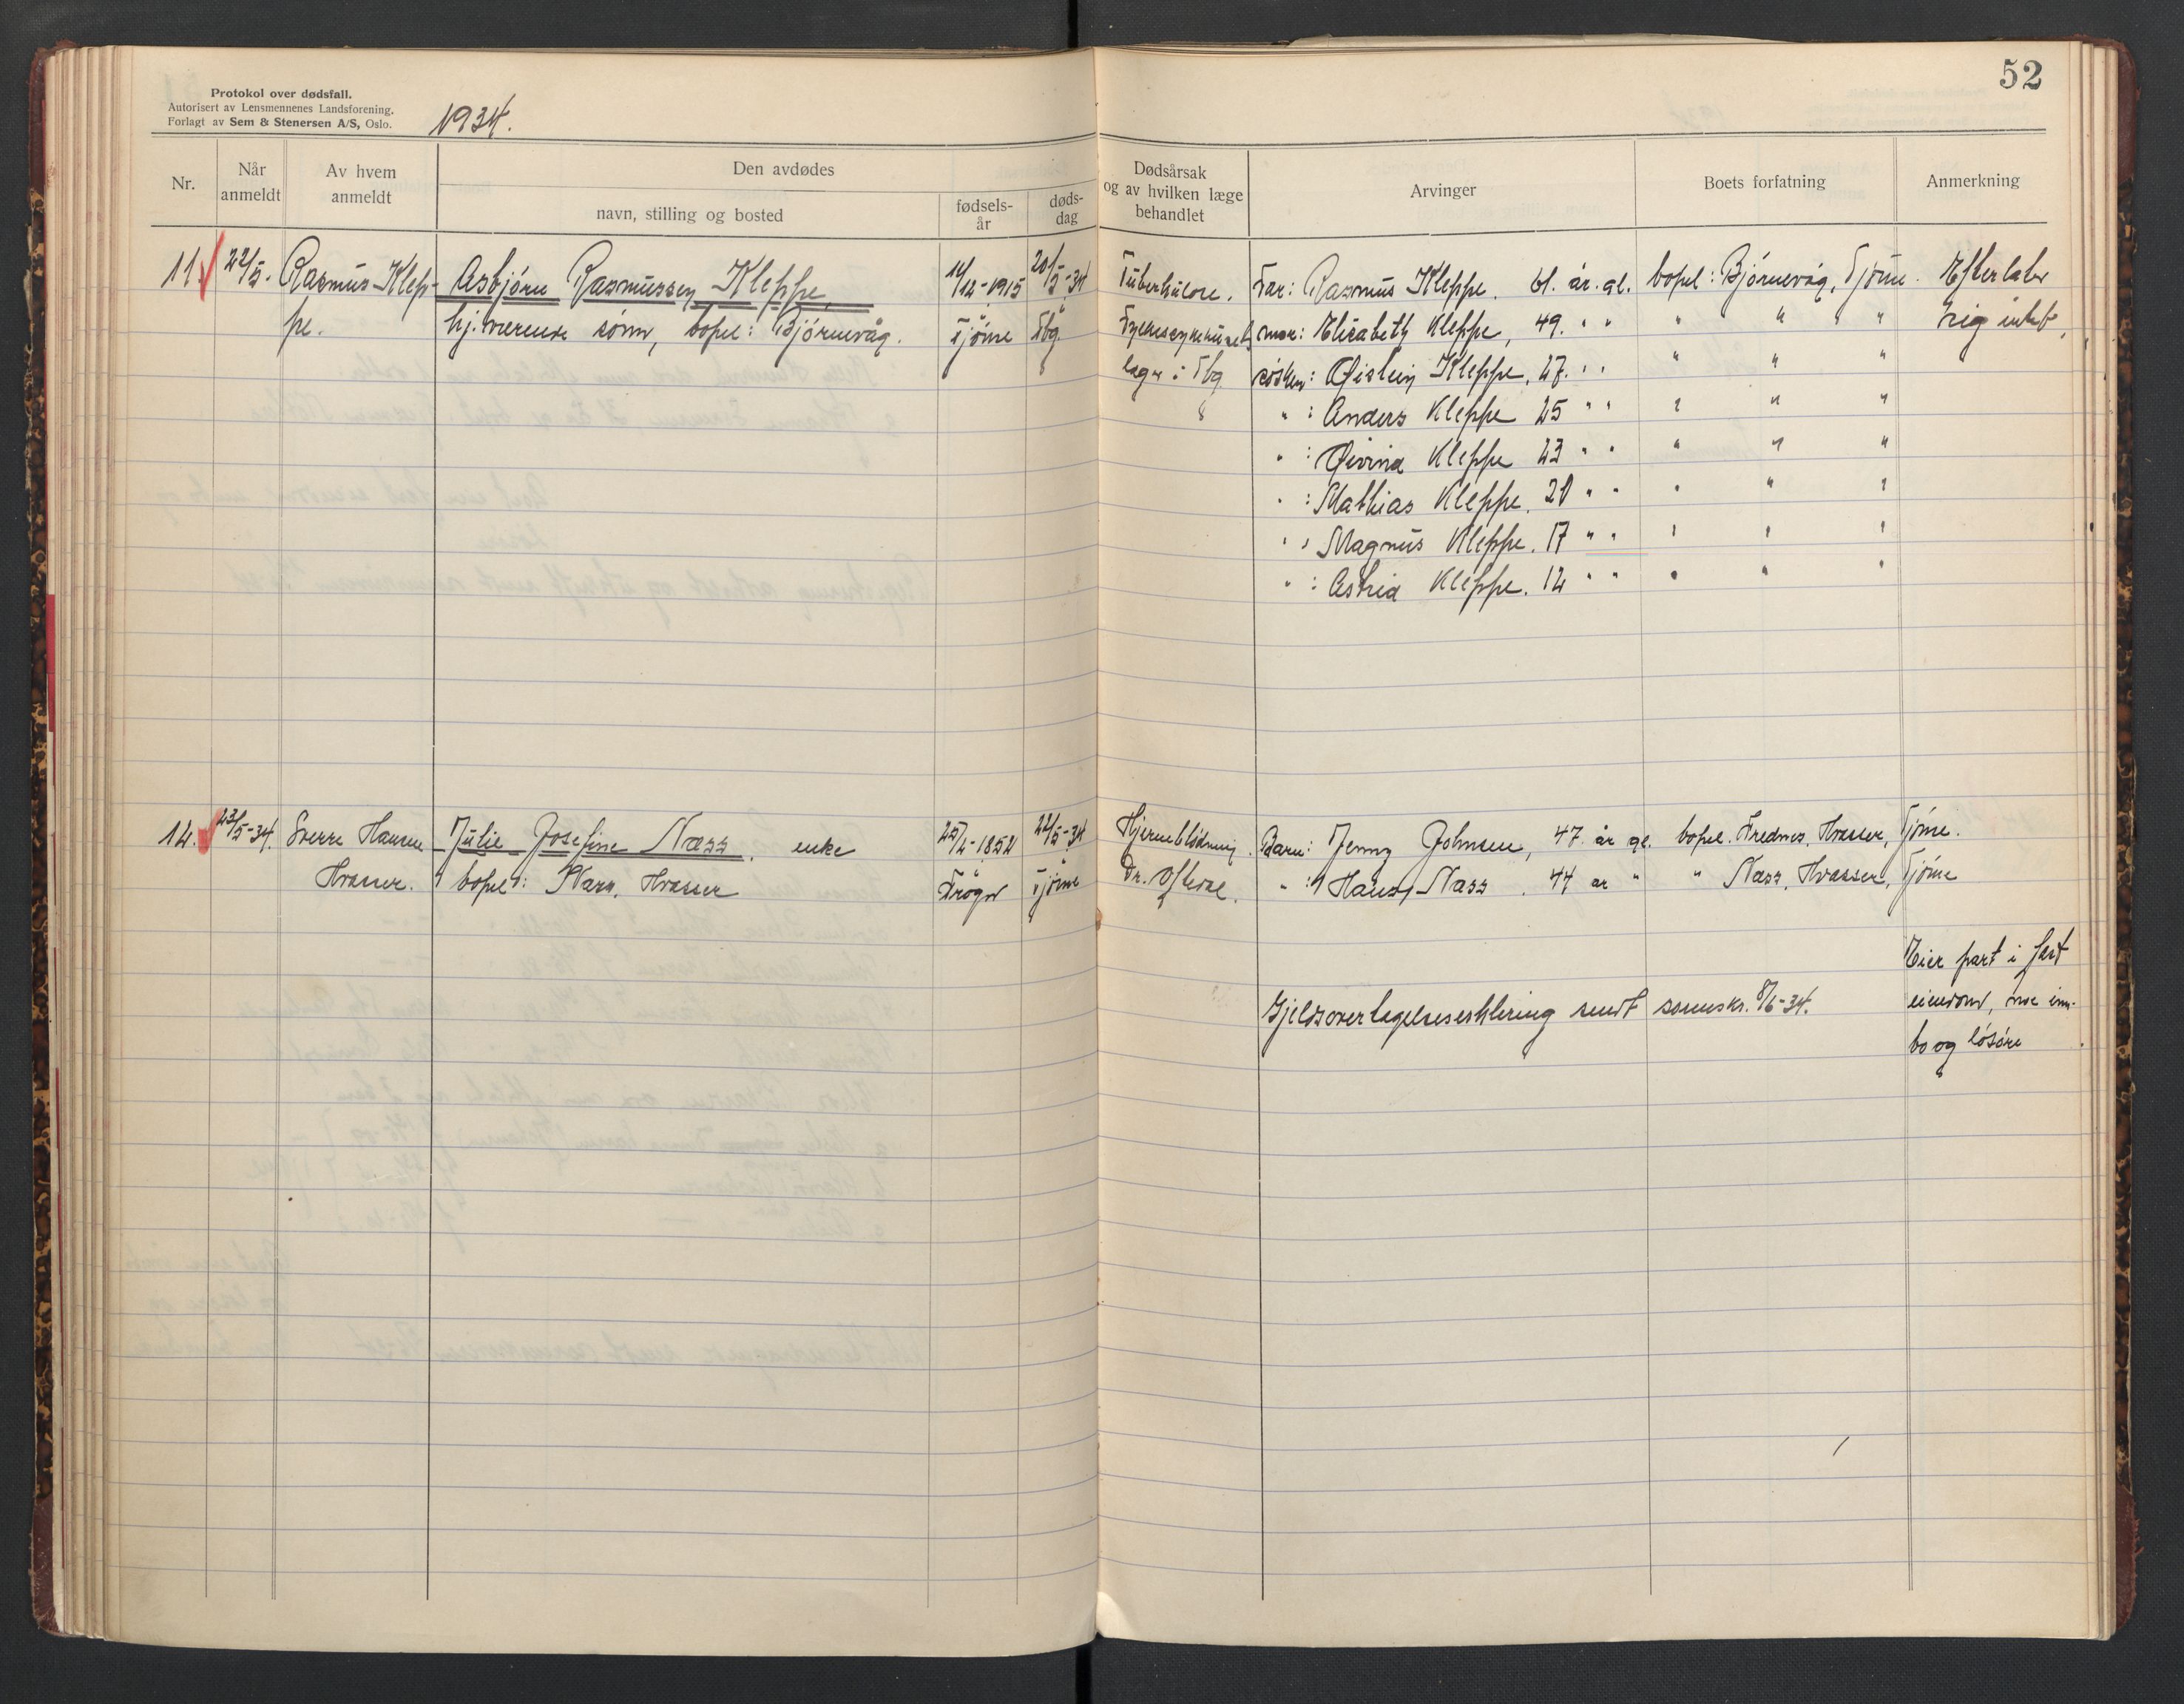 52
Protokol over dødsfall.
Autorisert av Lensmennenes Landsforening.
Forlagt av Sem & Stenersen A/S, Oslo.
1934.
Nr.
Når anmeldt
Av hvem anmeldt
Den avdødes
navn, stilling og bosted
fødsels-år
døds-dag
Dødsårsak og av hvilken læge behandlet
Arvinger
Boets forfatning
Anmerkning
11. 22/5. Rasmus Klep- Asbjørn Rasmussen Kleppe, 14/12-1915 20/5-34 Tuberkulose. Far: Rasmus Kleppe. 61. år. gl. bopel: Bjørnevåg, Tjøme. Efterlater
pe. hj.værende sønn, bopel: Bjørnevåg. Tjøme Tbg. Fylkessykehusets mor: Elisabeth Kleppe, 49. " " " " " sig intet,
læge i Tbg søsken: Øistein Kleppe, 27. " " " " "
" : Anders Kleppe 25 " " " " "
" : Øivind Kleppe 23 " " " " "
" : Mathias Kleppe. 21 " " " " "
" : Magnus Kleppe. 17 " " " " "
" : Astrid Kleppe. 12 " " " " "
12. 23/5-34. Sverre Hansen Julie Josefine Næss. enke 25/2-1852 22/5-34 Hjerneblödning. Barn: Jenny Johnsen, 47 år gl. bopel. Frednes, Hvasser, Tjöme.
Hvasser. bopel: Næss, Hvasser Tjöme Dr. " : Hans Næss. 44 år " " Næss, Hvasser, Tjöme
Eier part i fast
Gjeldsovertagelseserklæring sendt sorenskr. 8/6-34. eiendom, noe inn-
bo og lösöre